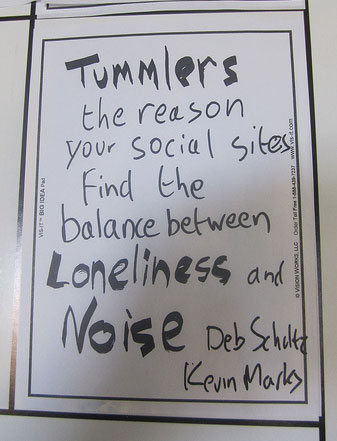 Tummlers
the reason
your social sites
Find the
balance between
Loneliness and
Noise Deb Schultz
Kevin Marks
VIS-IT™ BIG IDEA Pad
© VISION WORKS, LLC Order Toll Free 1-888-429-7237 www.vis-it.com